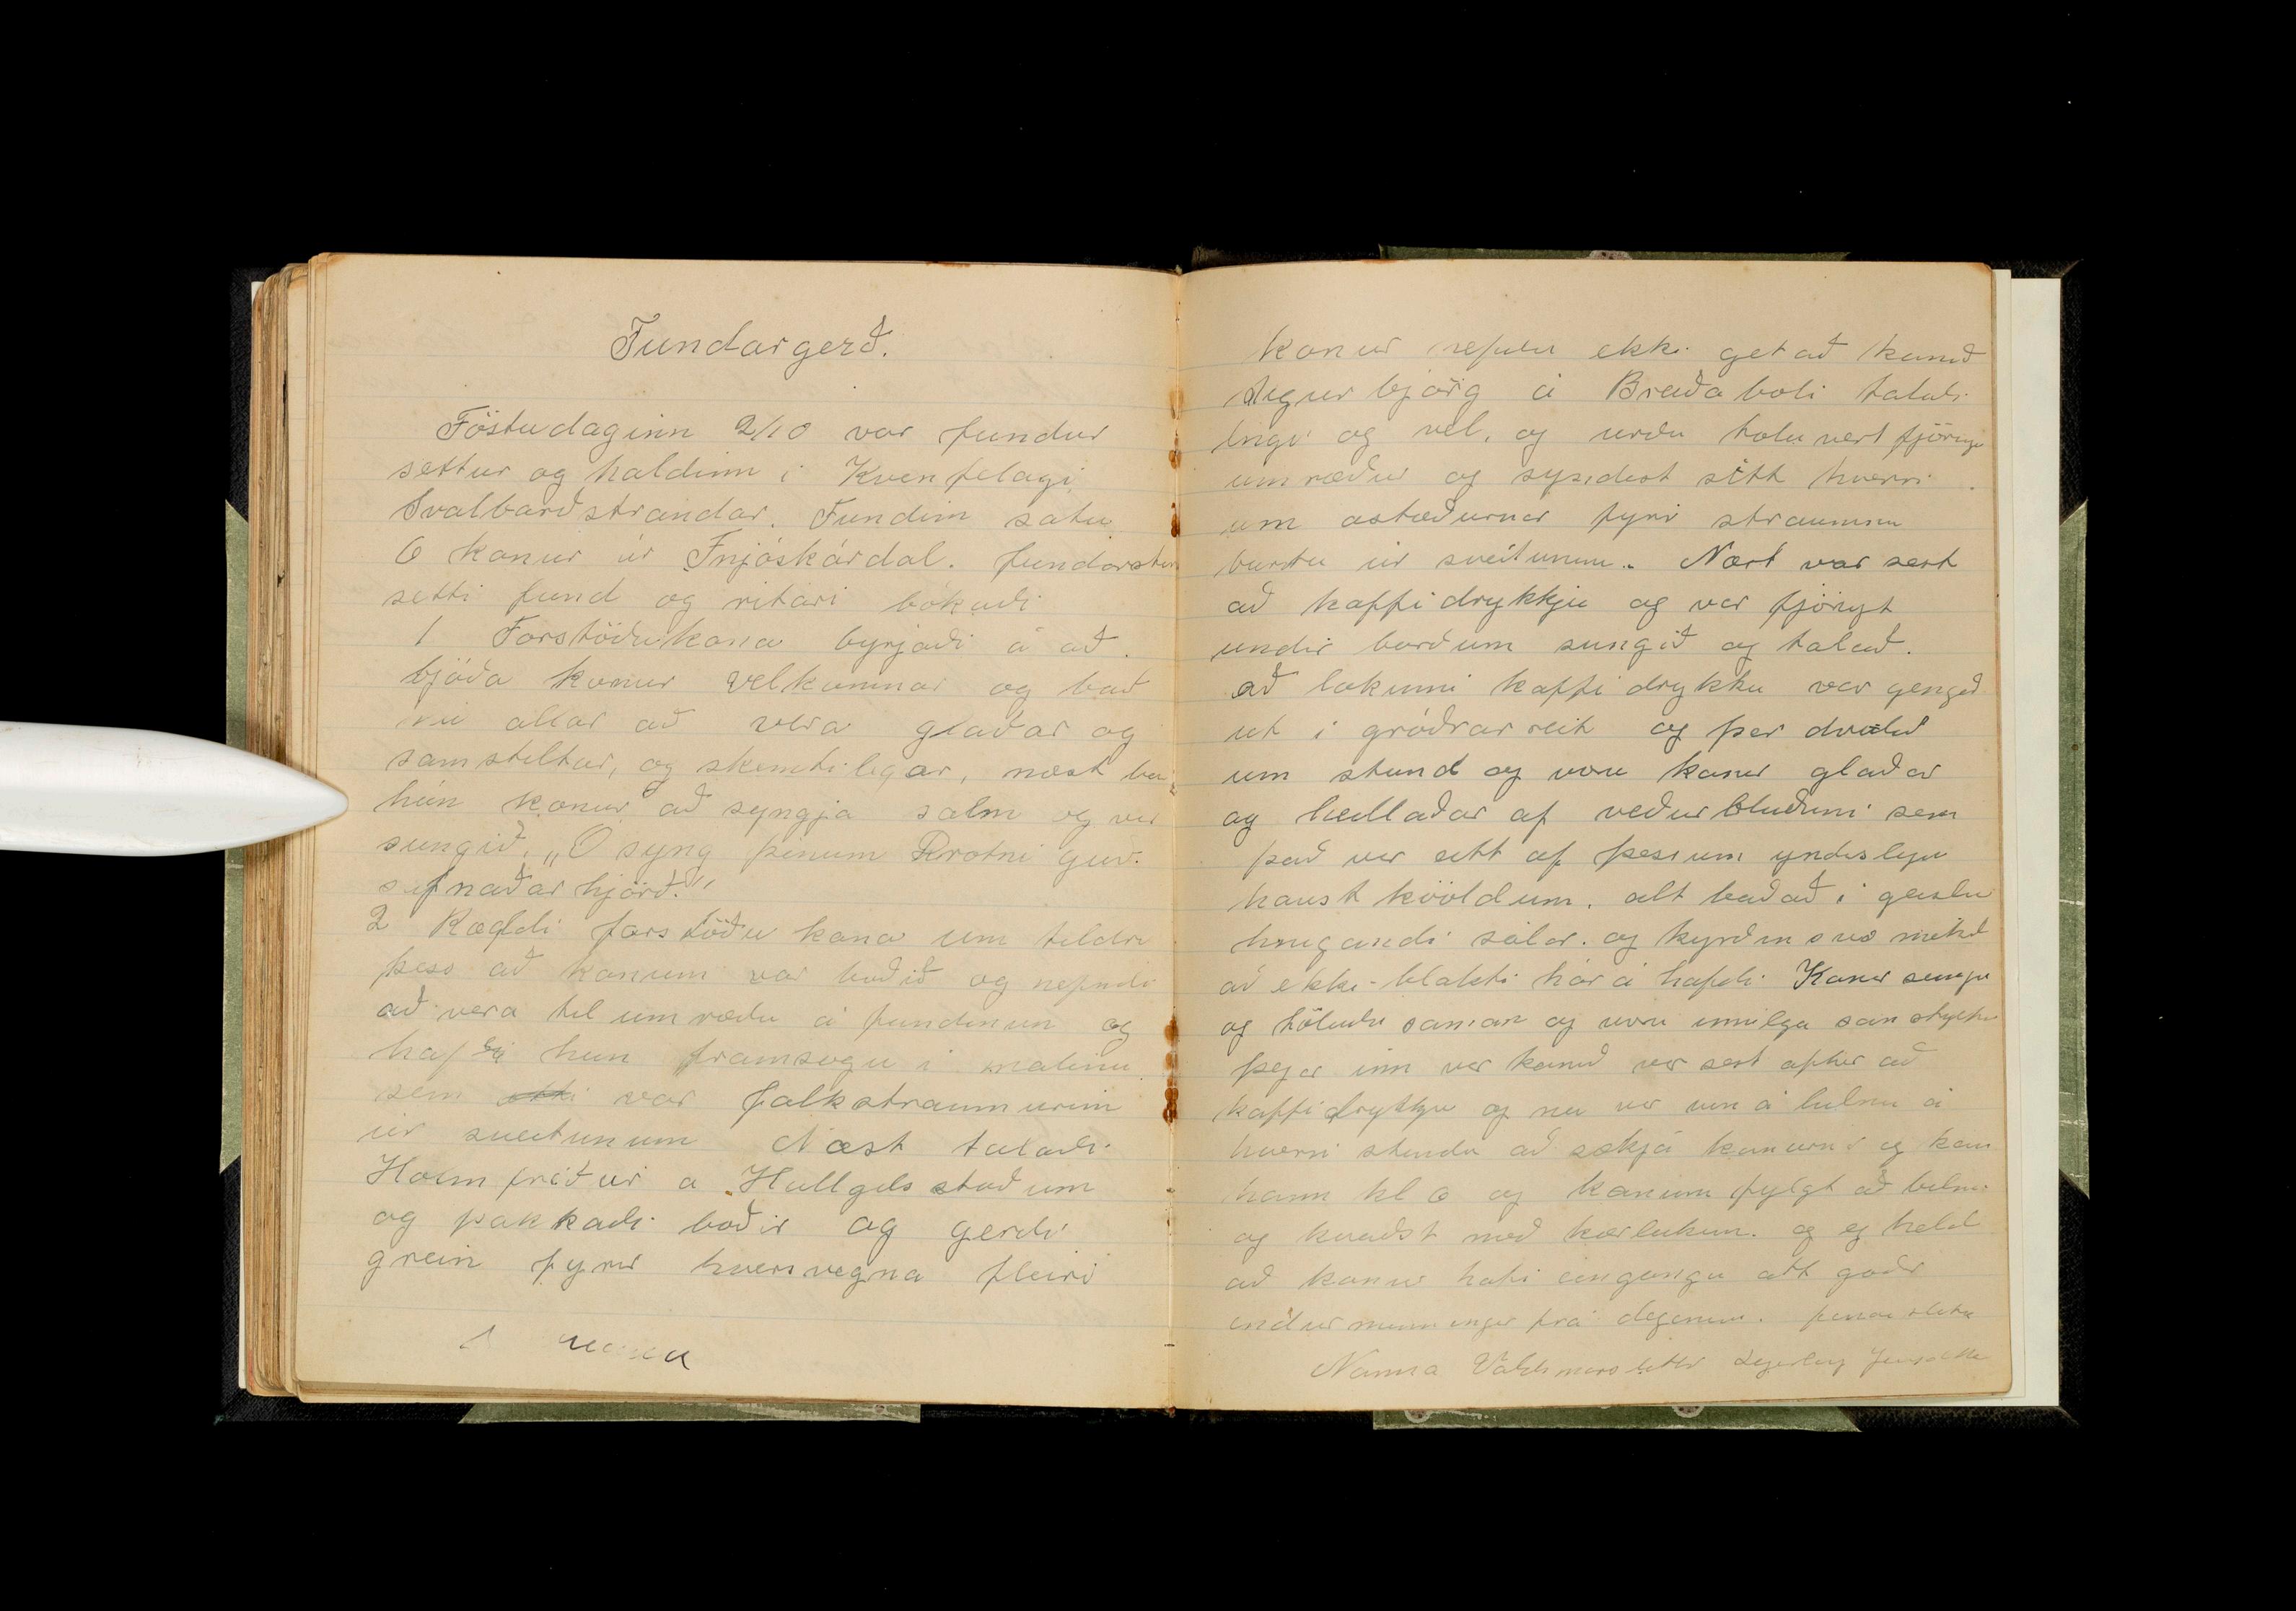 Fundargerð.
Föstudaginn 2/10 var fundur
settur og haldinn i Kvenfelagi
Svalbarðstrandar. Fundinn satu
6 konur úr Fnjóskárdal. fundarstm
setti fund og ritari bókaði
1 Forstöðukona byrjaði á að
bjóða konur velkomnar og bað
nú allar að vera glaðar og
samstiltar, og skemtilegar, næst ba
hún konur að syngja salm og var
sungið. „Ó syng þinum Drotni guð.
safnaðar hjörð."
2 Ræddi forstöðu kona um tildri
þess að konum var boðið og nefndi
að vera til umræðu á fundinum og
hafði hun framsogu i malinu
sem var folkstraumurin
úr sveitunum Næst talaði
Holmfriður a Hallgilsstaðum
og þakkaði boðir og gerði
grein fyrir hversvegna fleiri
konur hefðu ekki getað komið
Sigurbjörg á Breiðaboli talaði
lngi og vel, og urðu toluvert fjörugu
umræður og syndist sitt hverri
um astæðurnar fyrir straumnu
burtu úr sveitunum. Næst var sest
að kaffidrykkju og var fjörugt
undir borðum sungið og talað.
að lokunni kaffidrykku var gengið
ut i gróðrarreit og þar dvalið
um stund og voru konur glaðar
og hellaðar af veðurbliðunni sem
það var eitt af þessum yndislegu
haust kvöldum. alt baðað i geislu
hnigandi sólar. og kyrðin svo mikið
að ekki blakti hár á hafði Konur sungu
og töluðu saman og voru innilga samstyltar
þegar inn var komið var sest aftur að
kaffidrykkju og nu var von á bilnu á
hverri stundu að sækja konurnar og kom
hann kl 6 og konum fylgt að bilnu
og kvaðst með kærleikum. og eg held
að konur hafi eingongu att goðr
endurminningar frá deginum. fundi slitið
Nanna Valdimarsdottir